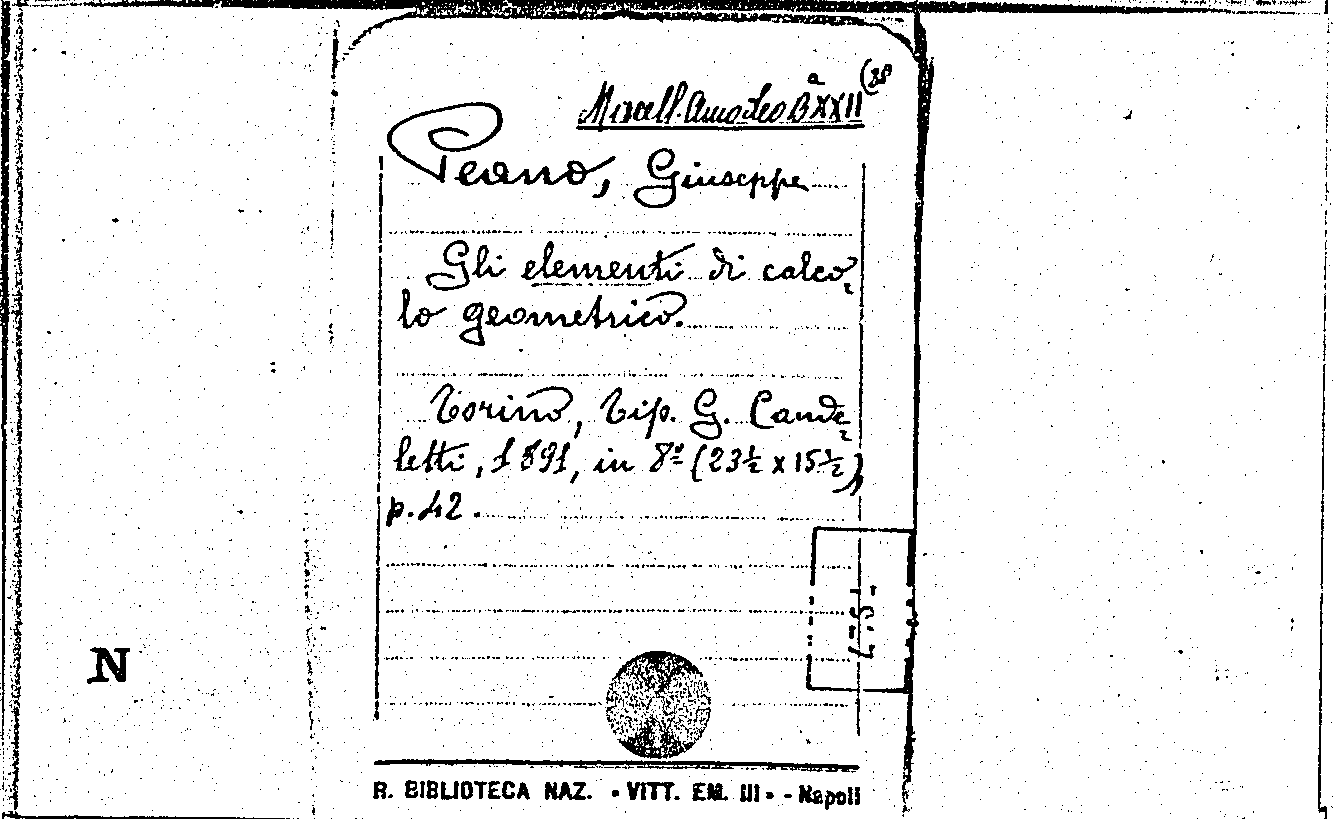 Miscell. Amodeo Bª XXII (38
Peano, Giuseppe
Gli elementi di calco-
lo geometrico.
Torino, Tip. G. Cande-
letti, 1891, in 8º (23½ x 15½),
p. 42.
N
R. BIBLIOTECA NAZ. • VITT. EM. III • - Napoli